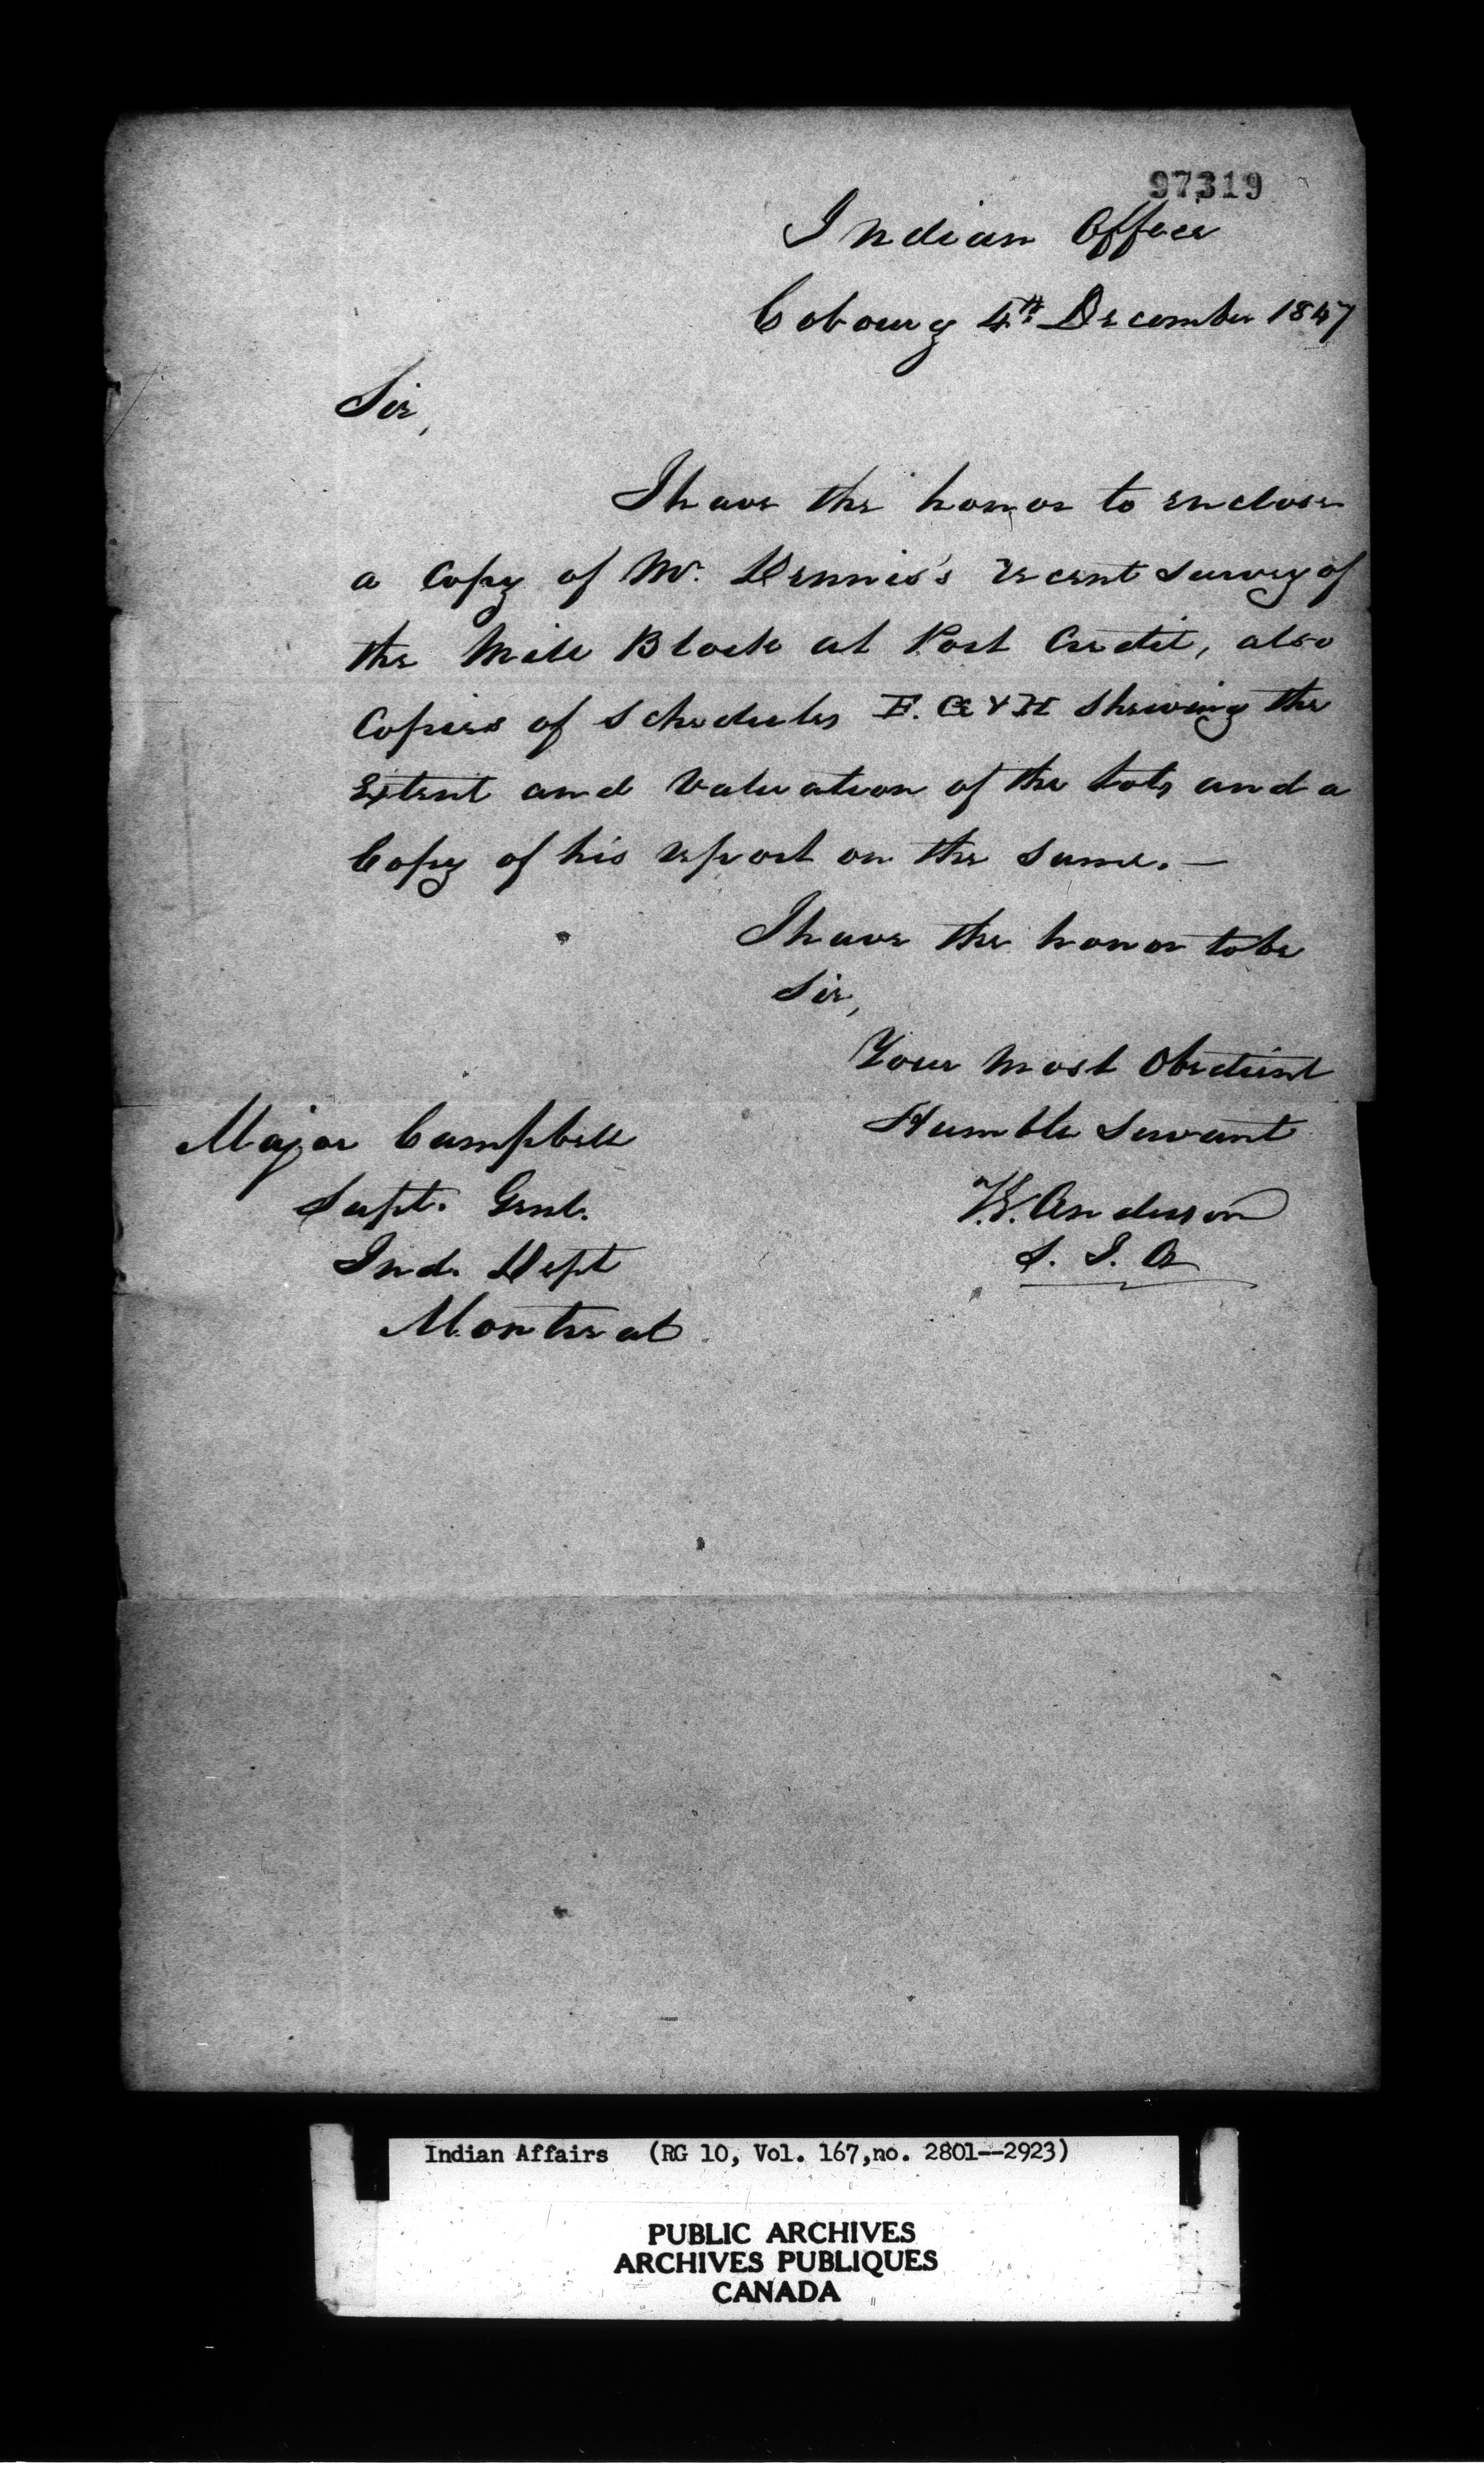 97319
Indian Office
Cobourg 4th December 1847
Sir,
I have the honor to enclose
a Copy of Mr. Dennis's recent survey of
the Mill Block at Port Credit, also
Copies of Schedules F. G & H shewing the
Extent and Valuation of the Lots and a
Copy of his report on the same. —
I have the honor to be
Sir,
Your Most Obedient
Humble Servant
Major Campbell
Supt. Genl.
Ind. Dept
Montreal
Anderson
S. I. A
Indian Affairs (RG 10, Vol. 167, no. 2801--2923)
PUBLIC ARCHIVES
ARCHIVES PUBLIQUES
CANADA